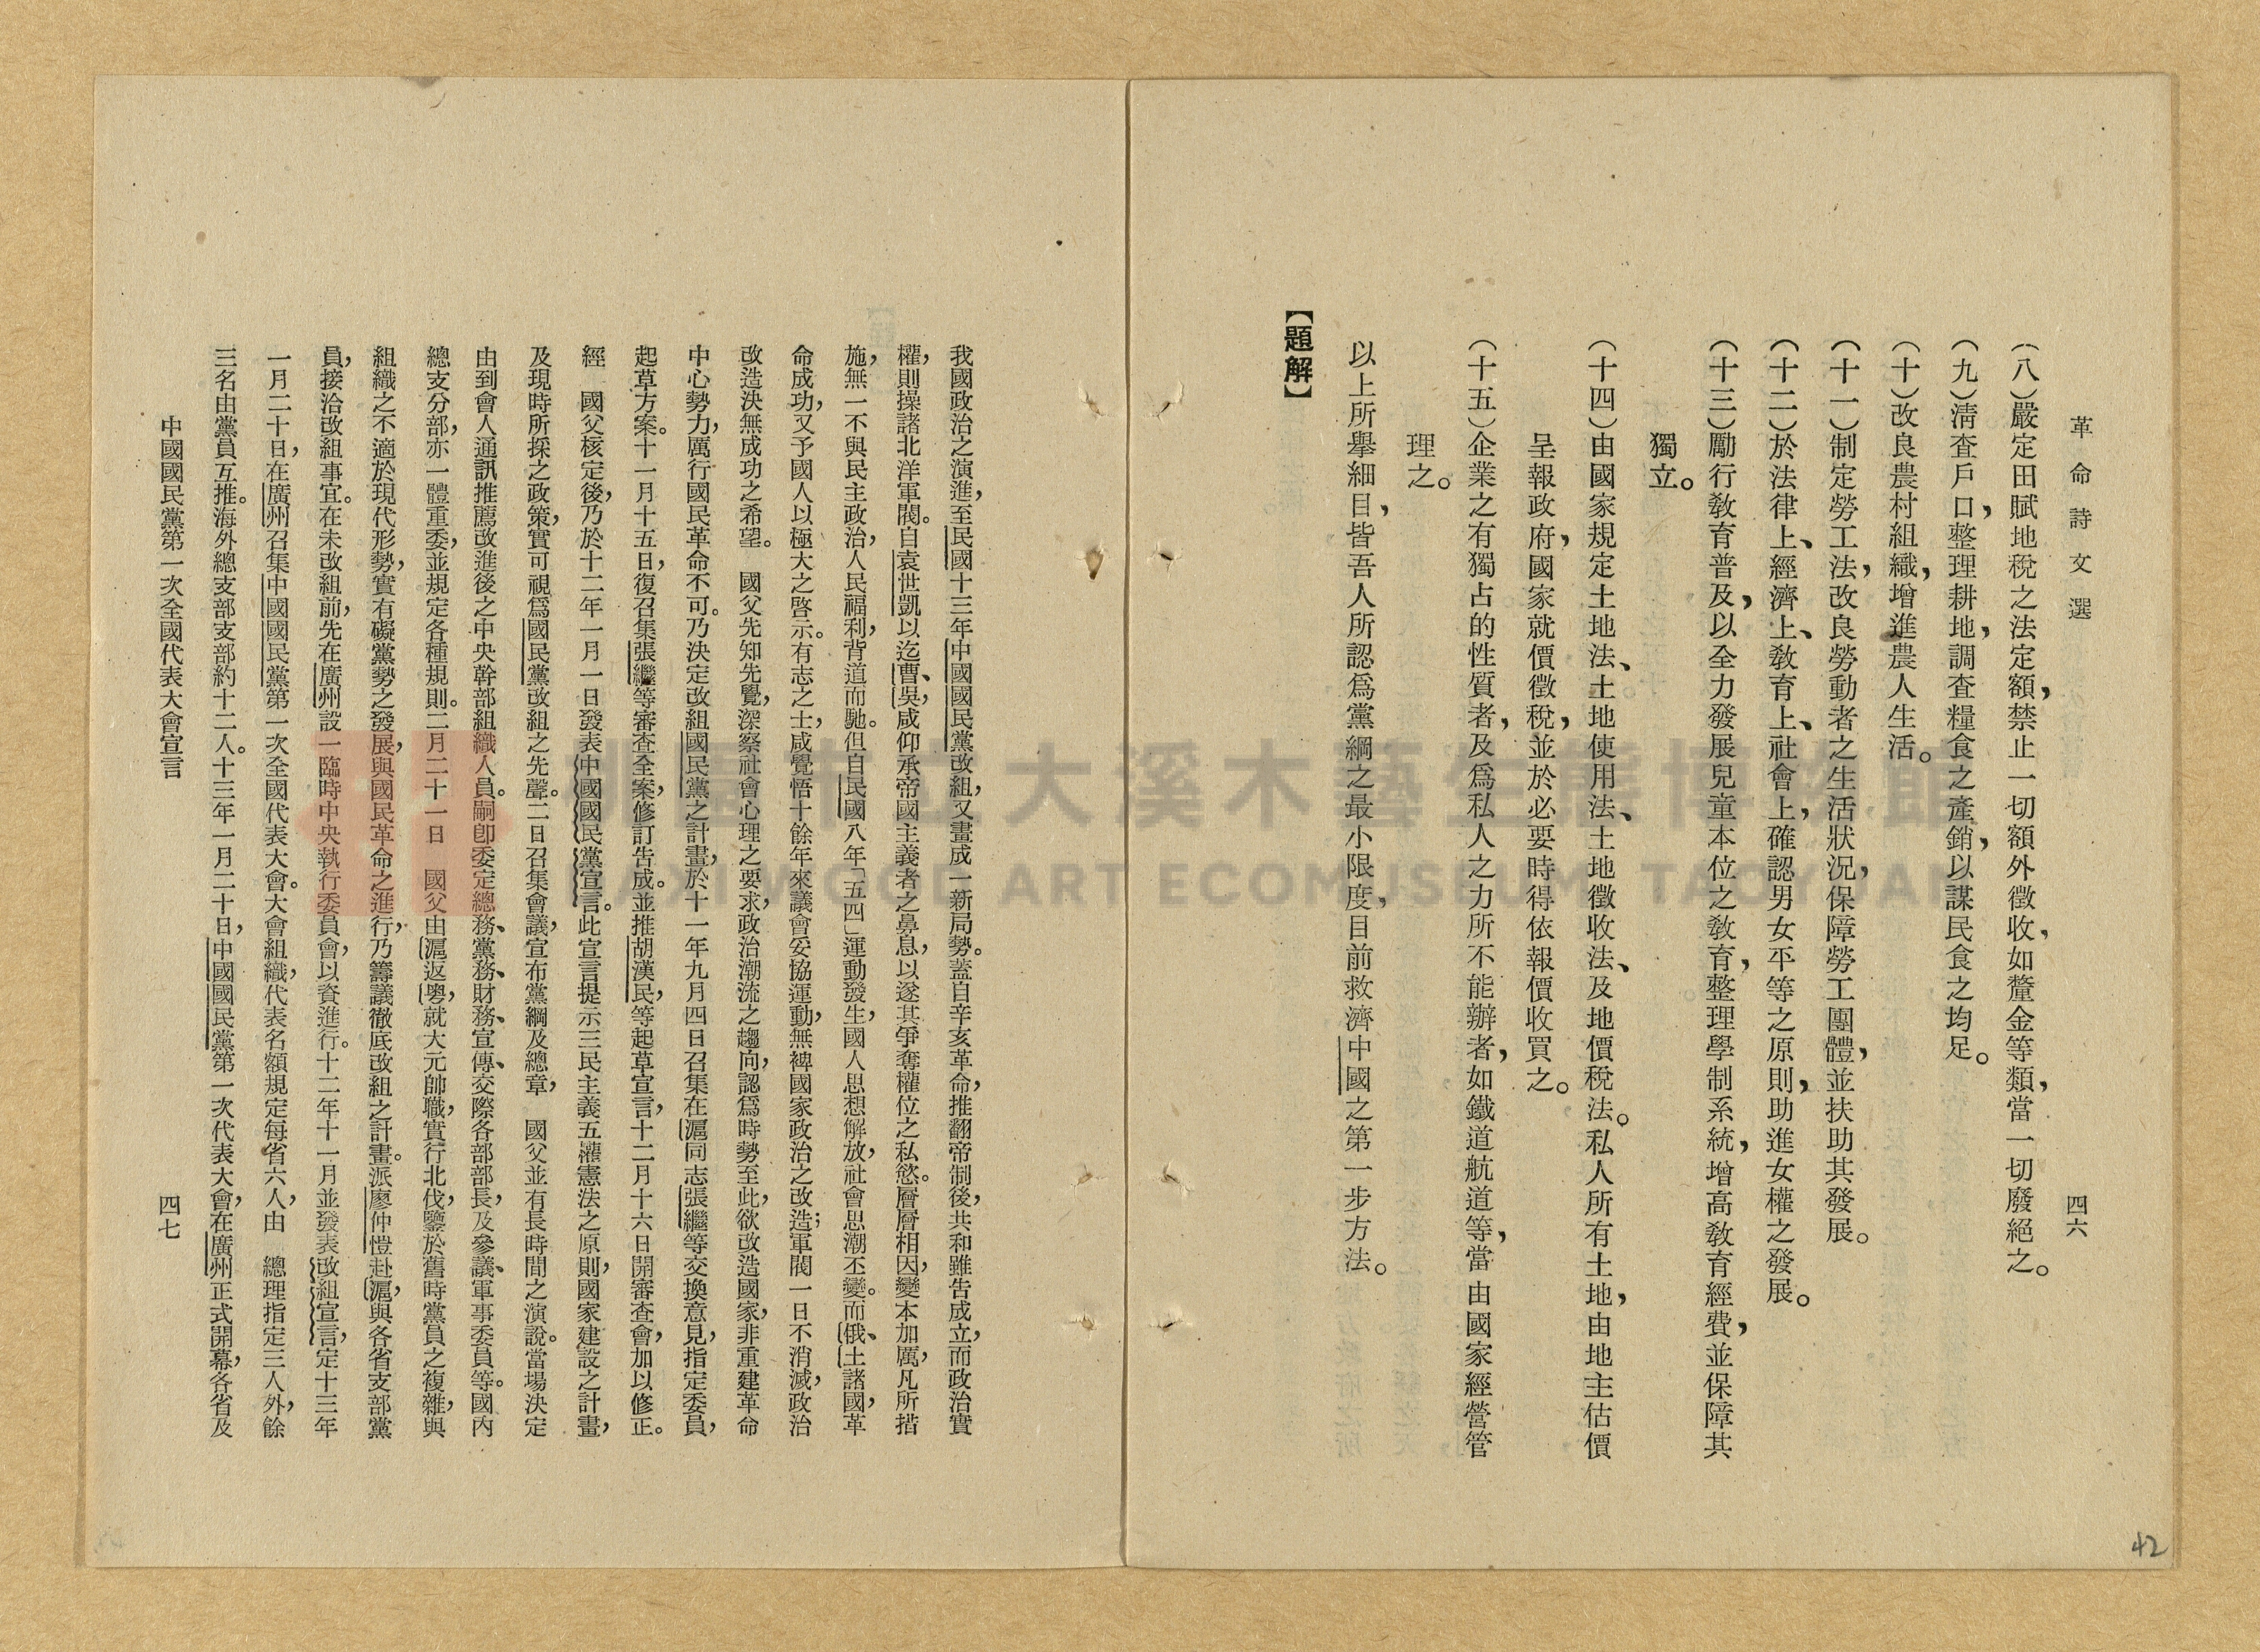 革命詩文選
四六
(八)嚴定田賦地稅之法定額,禁止一切額外徵收,如釐金等類,當一切廢絕之。
(九)淸查戶口,整理耕地,調查糧食之產銷,以謀民食之均足。
(十)改良農村組織,增進農人生活。
(十一)制定勞工法,改良勞動者之生活狀況,保障勞工團體,並扶助其發展。
(十二)於法律上、經濟上、敎育上、社會上,確認男女平等之原則,助進女權之發展。
(十三)勵行敎育普及,以全力發展兒童本位之敎育,整理學制系統,增高敎育經費,並保障其
獨立。
(十四)由國家規定土地法、土地使用法、土地徵收法、及地價稅法。私人所有土地,由地主估價
呈報政府,國家就價徵稅,並於必要時得依報價收買之。
(十五)企業之有獨占的性質者,及爲私人之力所不能辦者,如鐵道航道等,當由國家經營管
理之。
以上所舉細目,皆吾人所認爲黨綱之最小限度,目前救濟中國之第一步方法。
【題解】
我國政治之演進,至民國十三年中國國民黨改組,又畫成一新局勢。蓋自辛亥革命,推翻帝制後,共和雖告成立,而政治實
權,則操諸北洋軍閥。自袁世凱以迄曹、吳,咸仰承帝國主義者之鼻息,以遂其爭奪權位之私慾。層層相因,變本加厲,凡所措
施,無一不與民主政治,人民福利,背道而馳。但自民國八年「五四」運動發生,國人思想解放,社會思潮丕變。而俄、土諸國,革
命成功,又予國人以極大之啓示。有志之士,咸覺悟十餘年來議會妥協運動,無裨國家政治之改造;軍閥一日不消滅,政治
改造決無成功之希望。　國父先知先覺,深察社會心理之要求,政治潮流之趨向,認爲時勢至此,欲改造國家,非重建革命
中心勢力,厲行國民革命不可。乃決定改組國民黨之計畫,於十一年九月四日召集在滬同志張繼等交換意見,指定委員,
起草方案。十一月十五日,復召集張繼等審查全案,修訂告成。並推胡漢民,等起草宣言,十二月十六日開審查會,加以修正。
經　國父核定後,乃於十二年一月一日發表中國國民黨宣言。此宣言提示三民主義五權憲法之原則,國家建設之計畫,
及現時所採之政策,實可視爲國民黨改組之先聲。二日召集會議,宣布黨綱及總章,　國父並有長時間之演說。當場決定
由到會人通訊推薦改進後之中央幹部組織人員。嗣卽委定總務、黨務、財務、宣傳、交際各部部長,及參議、軍事委員等。國內
總支分部,亦一體重委,並規定各種規則。二月二十一日　國父由滬返粵,就大元帥職,實行北伐,鑒於舊時黨員之複雜,與
組織之不適於現代形勢,實有礙黨勢之發展,與國民革命之進行,乃籌議徹底改組之計畫。派廖仲愷赴滬,與各省支部黨
員,接洽改組事宜。在未改組前,先在廣州設一臨時中央執行委員會,以資進行。十二年十一月並發表改組宣言,定十三年
一月二十日,在廣州召集中國國民黨第一次全國代表大會。大會組織,代表名額規定每省六人,由　總理指定三人外,餘
三名由黨員互推。海外總支部支部約十二人。十三年一月二十日,中國國民黨第一次代表大會,在廣州正式開幕,各省及
中國國民黨第一次全國代表大會宣言
四七
42
大溪木藝生態博物館
DAXI WOOD ART ECOMUSEUM, TAOYUAN